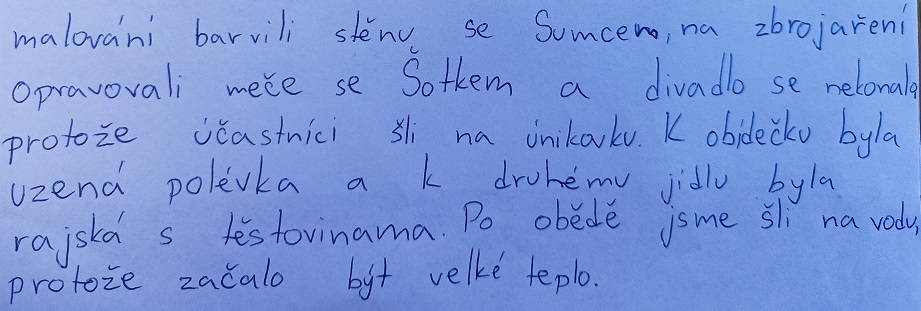 malování barvili stěnu se Sumcem, na zbrojaření
opravovali meče se Šotkem a divadlo se nekonalo
protože účastníci šli na únikovku. K obídečku byla
uzená polévka a k druhému jídlu byla
rajská s těstovinama. Po obědě jsme šli na vodu,
protože začalo být velké teplo.